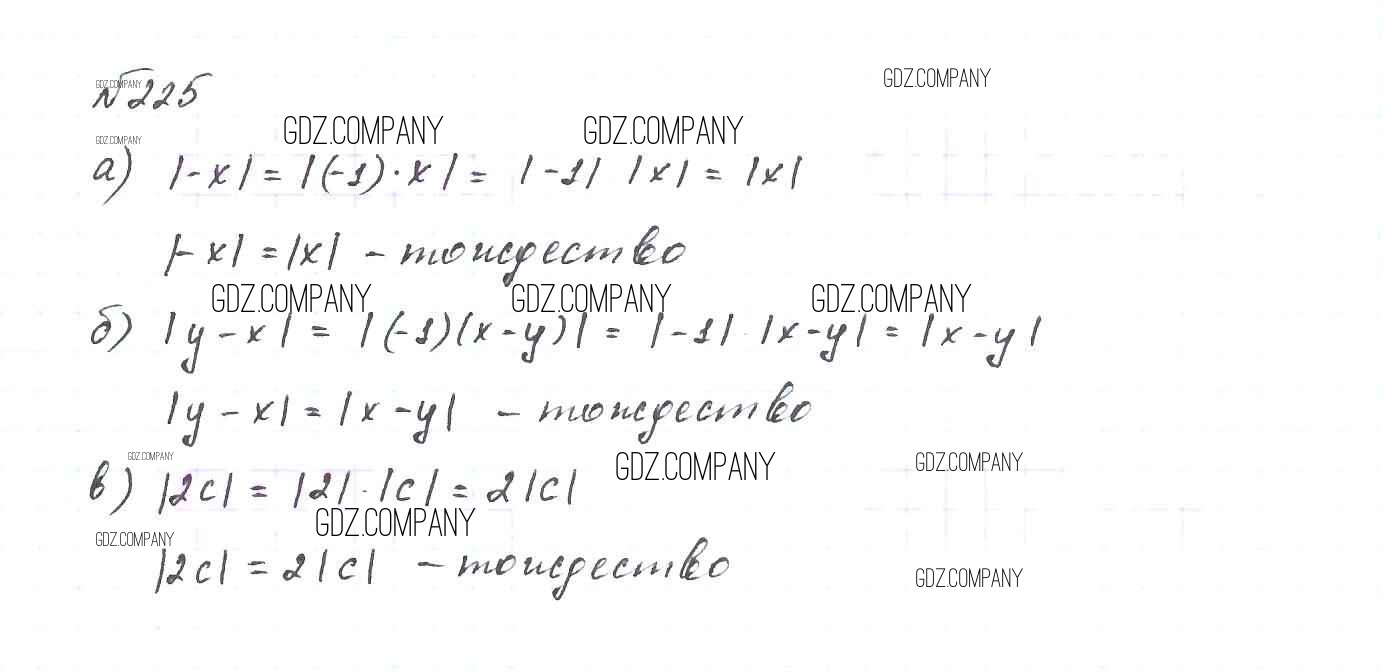 GDZ.COMPANY
№225
GDZ.COMPANY
GDZ.COMPANY GDZ.COMPANY
GDZ.COMPANY
а) |-x| = |(-1)·x| = |-1| |x| = |x|
|-x| = |x| - тождество
GDZ.COMPANY GDZ.COMPANY GDZ.COMPANY
б) |y-x| = |(-1)(x-y)| = |-1|·|x-y| = |x-y|
|y-x| = |x-y| - тождество
GDZ.COMPANY GDZ.COMPANY GDZ.COMPANY
в) |2c| = |2|·|c| = 2|c|
GDZ.COMPANY GDZ.COMPANY
|2c| = 2|c| - тождество
GDZ.COMPANY